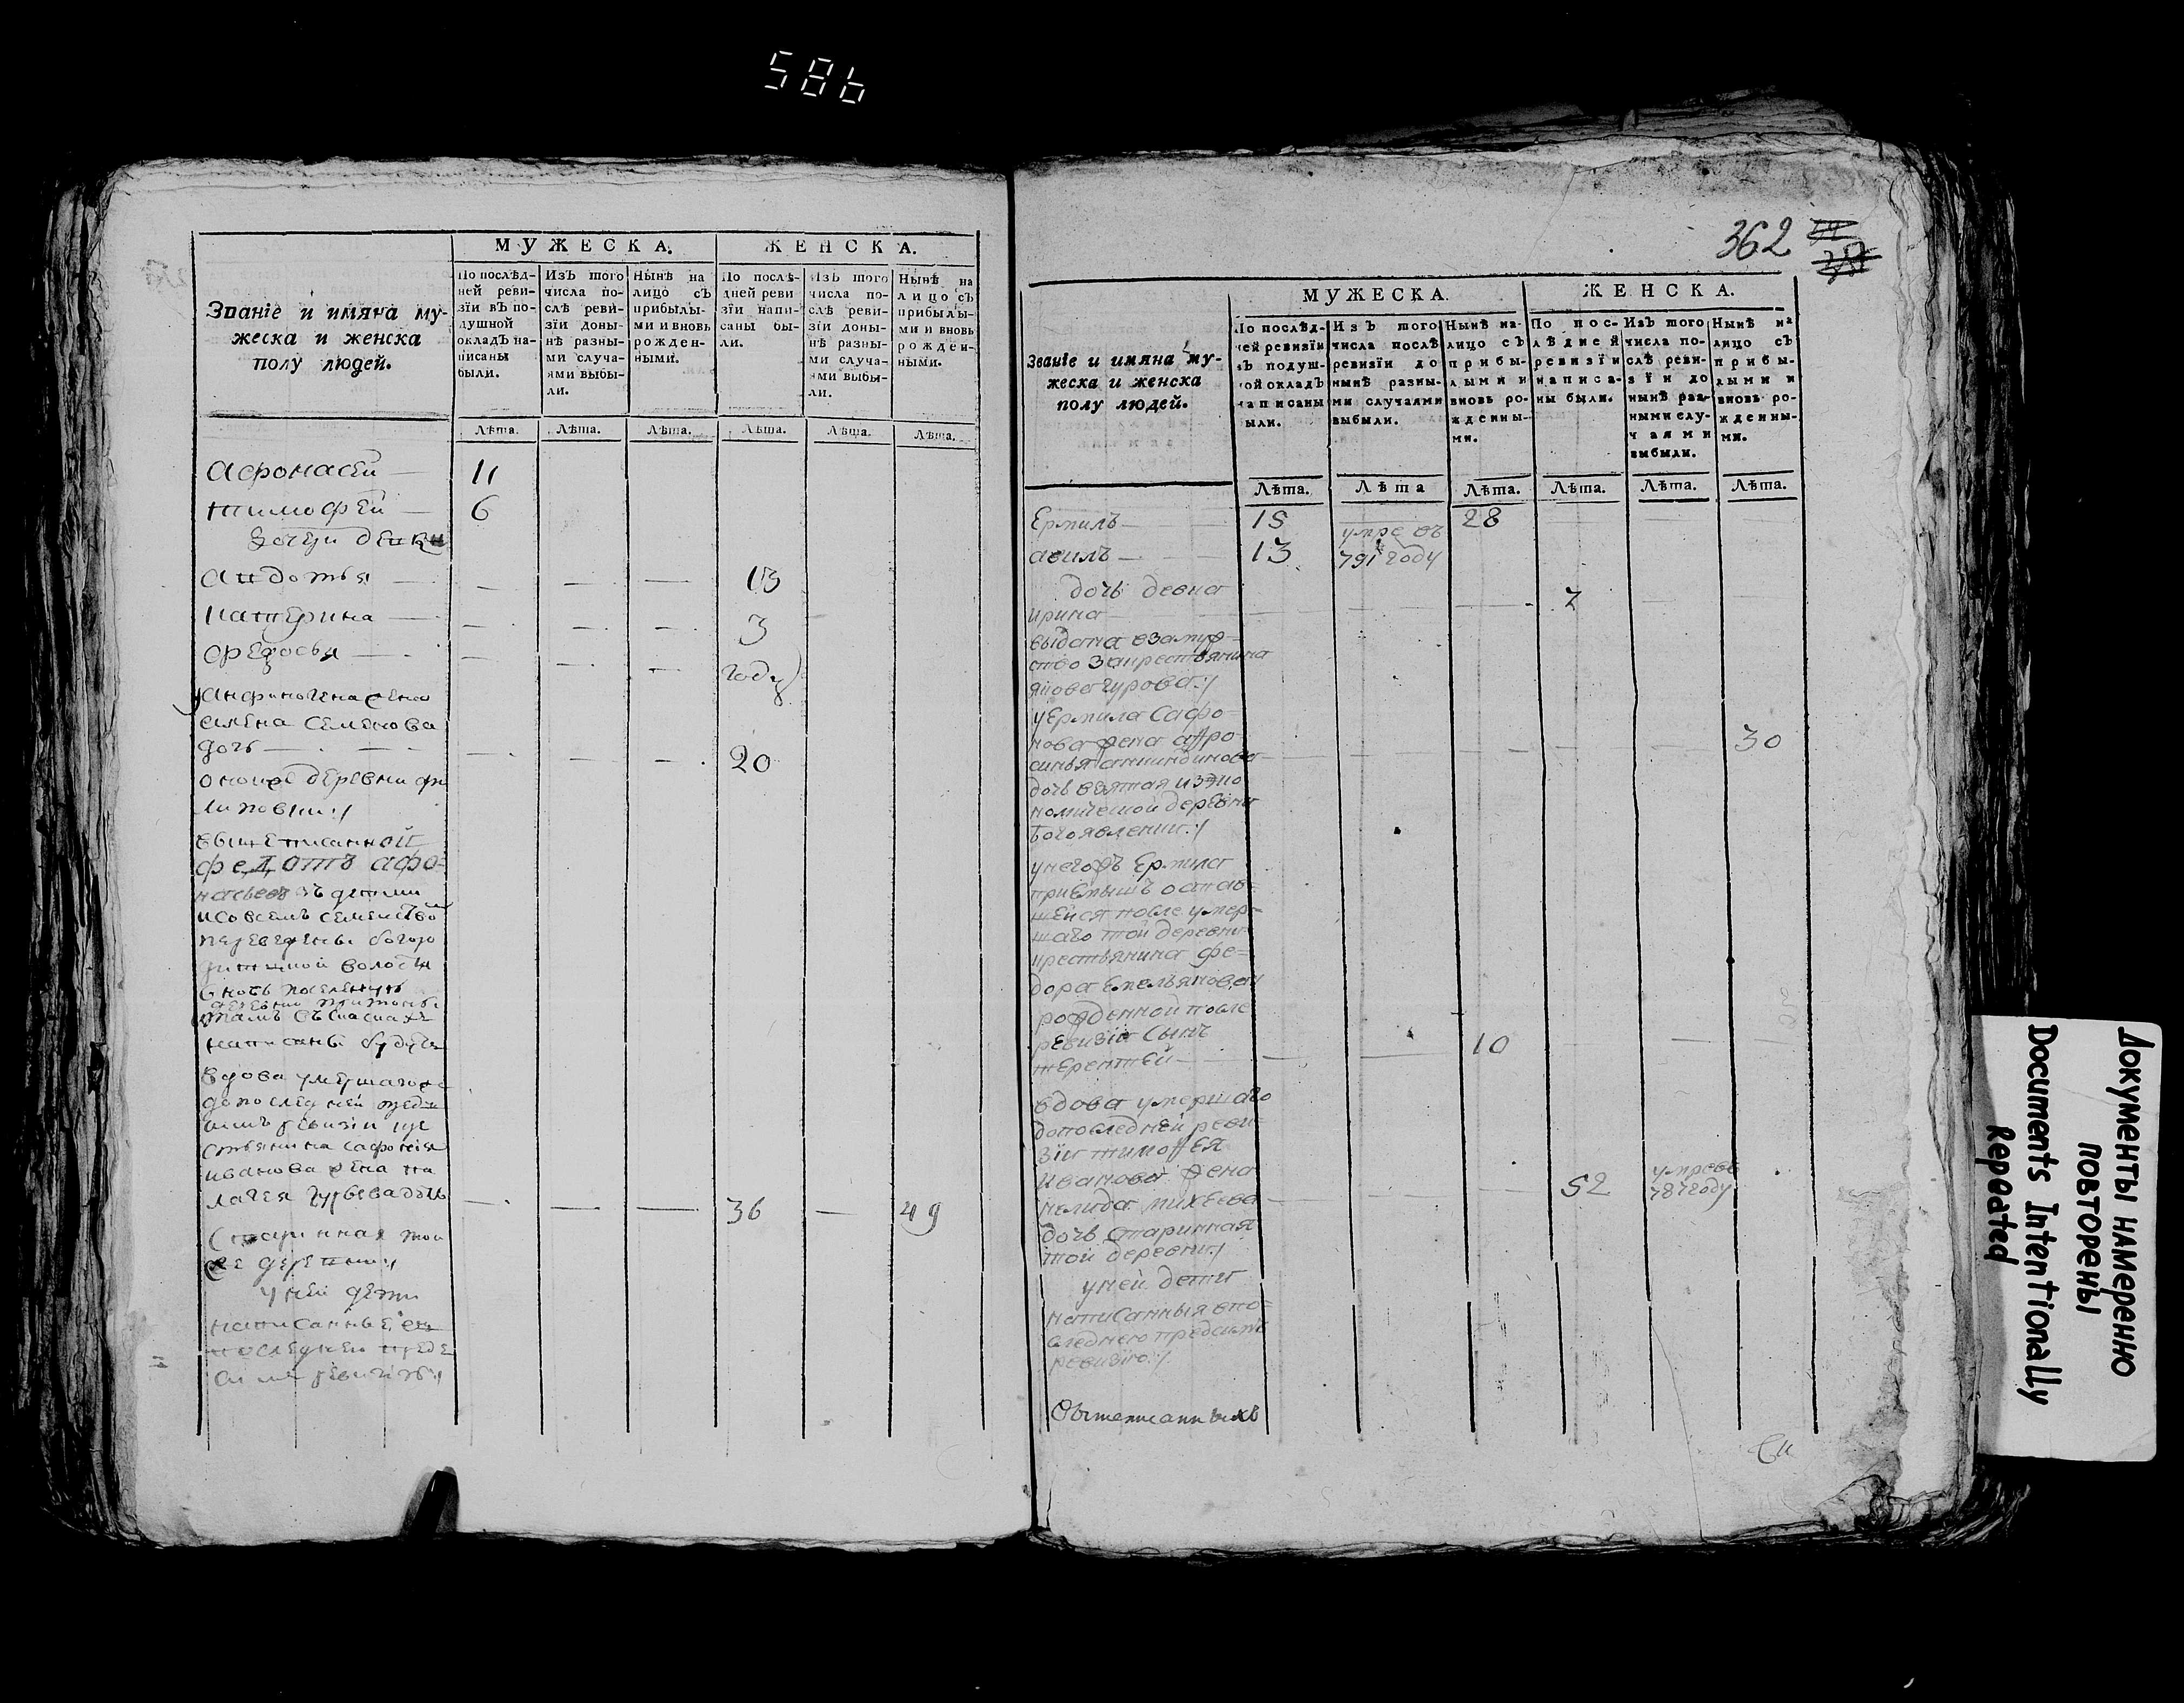 586
МУЖЕСКА.
ЖЕНСКА.
Званіе и имяна му-
жеска и женска
полу людей.
По послѣд-
ней реви-
зіи въ по-
душной
окладъ на-
писаны
были.
Изъ того
числа по-
слѣ реви-
зіи доны-
нѣ разны-
ми случа-
ями выбы-
ли.
Нынѣ на
лицо съ
прибылы-
ми и вновь
рожден-
ными.
По послѣ-
дней реви
зіи напи-
саны бы-
ли.
Изъ того
числа по-
слѣ реви-
зіи доны-
нѣ разны-
ми случа-
ями выбы-
ли.
Нынѣ на
лицо съ
прибылы-
ми и вновь
рожден-
ными.
Лѣта. Лѣта. Лѣта. Лѣта. Лѣта. Лѣта.
Афонасей 11
тимофей 6
дочери девки
Авдотья 13
Катерина 3
Федосья году
уанфиногена жена
елена Семенова
дочь 20
оной же деревни фи
липовки:/
вышеписанной
федотъ афо-
насьевъ зъ детми
исовсемъ семейство
переведены богоро
волости
вновь поселенную
деревню
тамъ въ сказкахъ
написаны будутъ
вдова умершаго же
допоследней пред
симъ ревизіи кре
стьянина сафонія
иванова жена па
лагея гурьева дочь 36 49
Старинная той
же деревни:/
у ней дети
написанные въ
последнею преде
симъ ревизию:/
362
МУЖЕСКА.
ЖЕНСКА.
Званіе и имяна му-
жеска и женска
полу людей.
По послѣд-
ней ревизіи
въ подуш-
ной окладъ
написаны
были.
Изъ того
числа послѣ
ревизіи до
нынѣ разны-
ми случаями
выбыли.
Нынѣ на-
лицо съ
прибы-
лыми и
вновь ро-
жденны-
ми.
По пос-
лѣдней
ревизіи
написа-
ны были.
Изъ того
числа по-
слѣ реви-
зіи до
нынѣ раз-
ными слу-
чаями
выбыли.
Нынѣ на
лицо съ
прибы-
лыми и
вновь ро-
жденны-
ми.
Лѣта. Лѣта Лѣта. Лѣта. Лѣта. Лѣта.
Ермилъ 15 28
авилъ 13 умре въ
791 году
дочь девка
ирина 7
выдана взамуж-
ство закрестьянина
якова гурова:/
уермила Сафо-
нова жена афро-
синья 30
дочь взятая изэко
номической деревни
Богоявления:/
унегожъ Ермила
приемышъ остав-
шейся после умер-
шаго той деревни
крестьянина фе-
дора Емельянова
рожденной после
ревизіи сынъ
терентей 10
вдова умершаго
допоследней реви-
зіи тимофея
Иванова жена
михеева 52 умре въ
787 году
дочь Старинная
той деревни:/
уней дети
написанныя впо-
следнею предсимъ
ревизію:/
Вышеписанныхъ
Документы намеренно
повторены
Documents Intentionally
Repeated